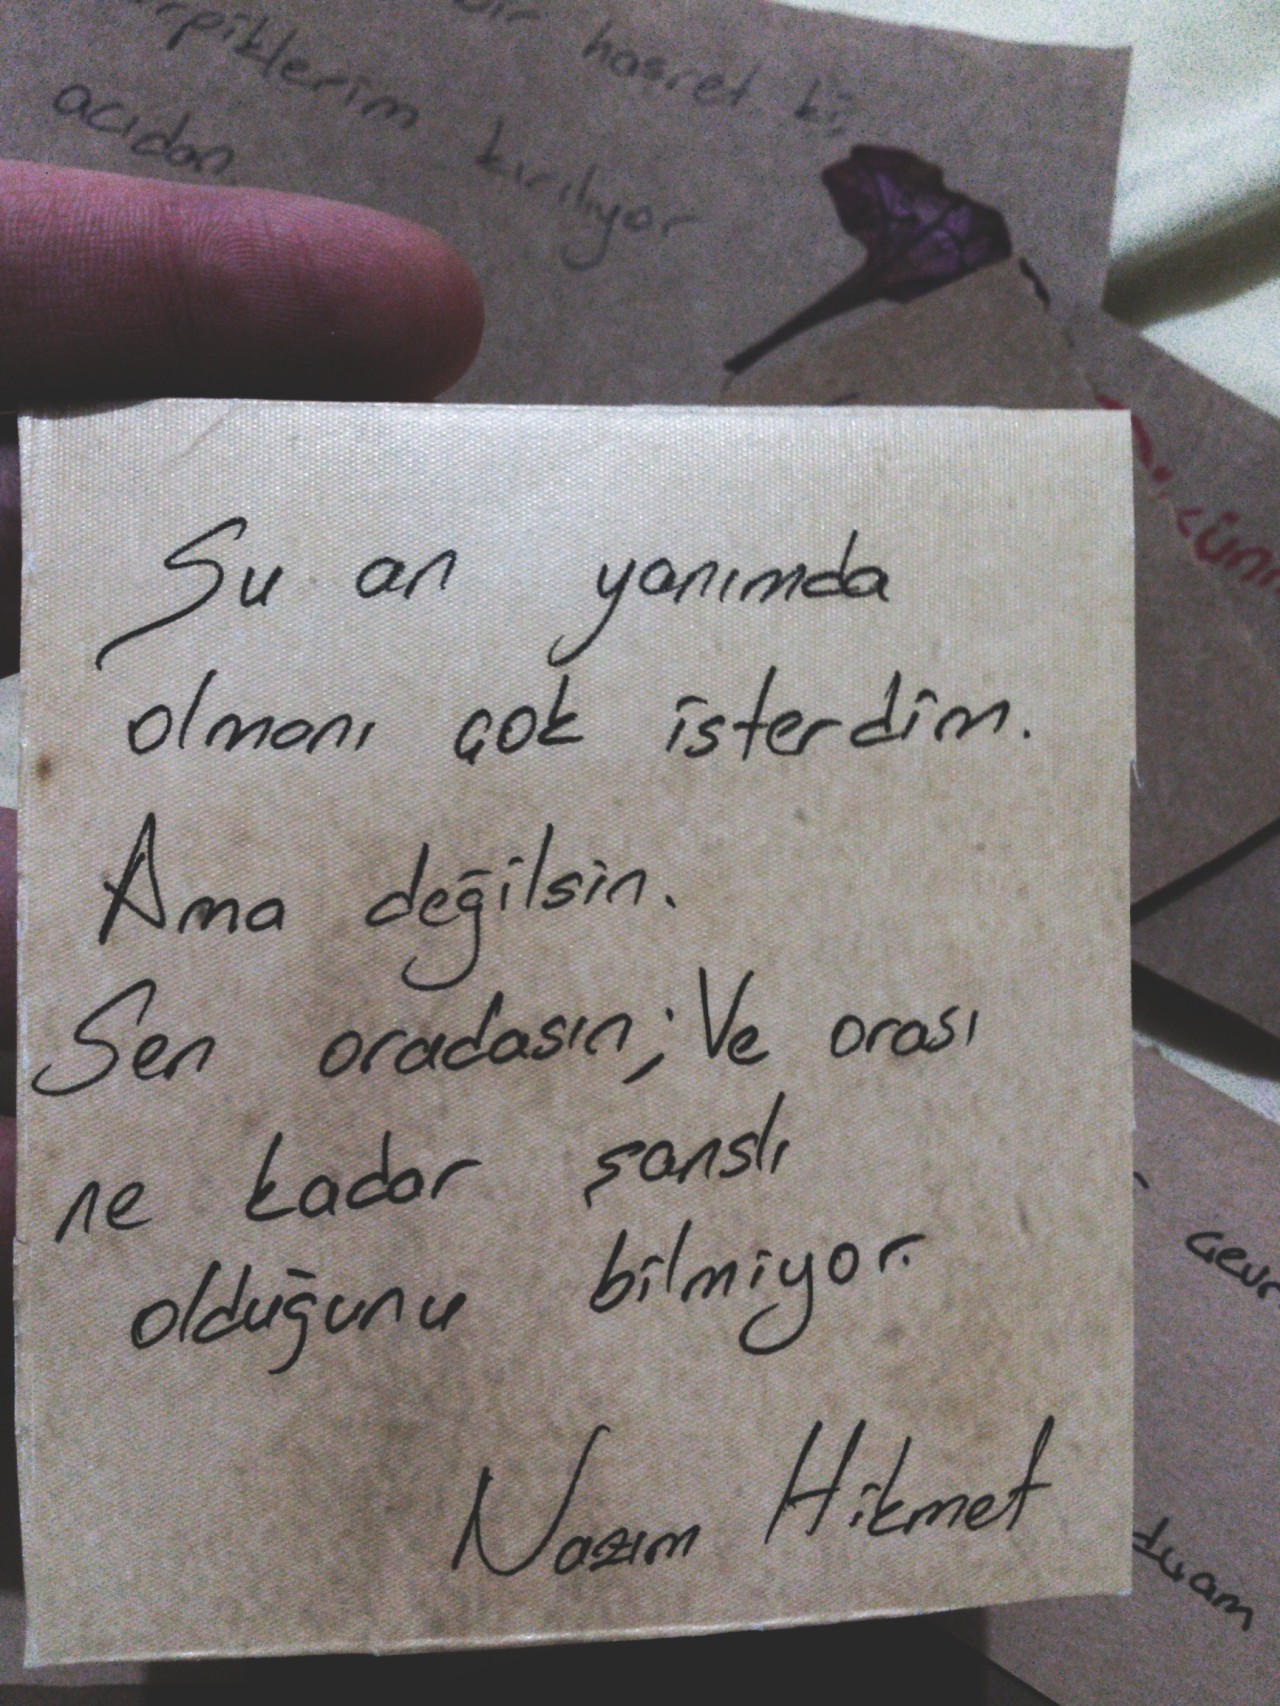 bir hasret ki,
kirpiklerim kırılıyor
acıdan.
Şu an yanımda
olmanı çok isterdim.
Ama değilsin.
Sen oradasın; Ve orası
ne kadar şanslı
olduğunu bilmiyor.
Nazım Hikmet